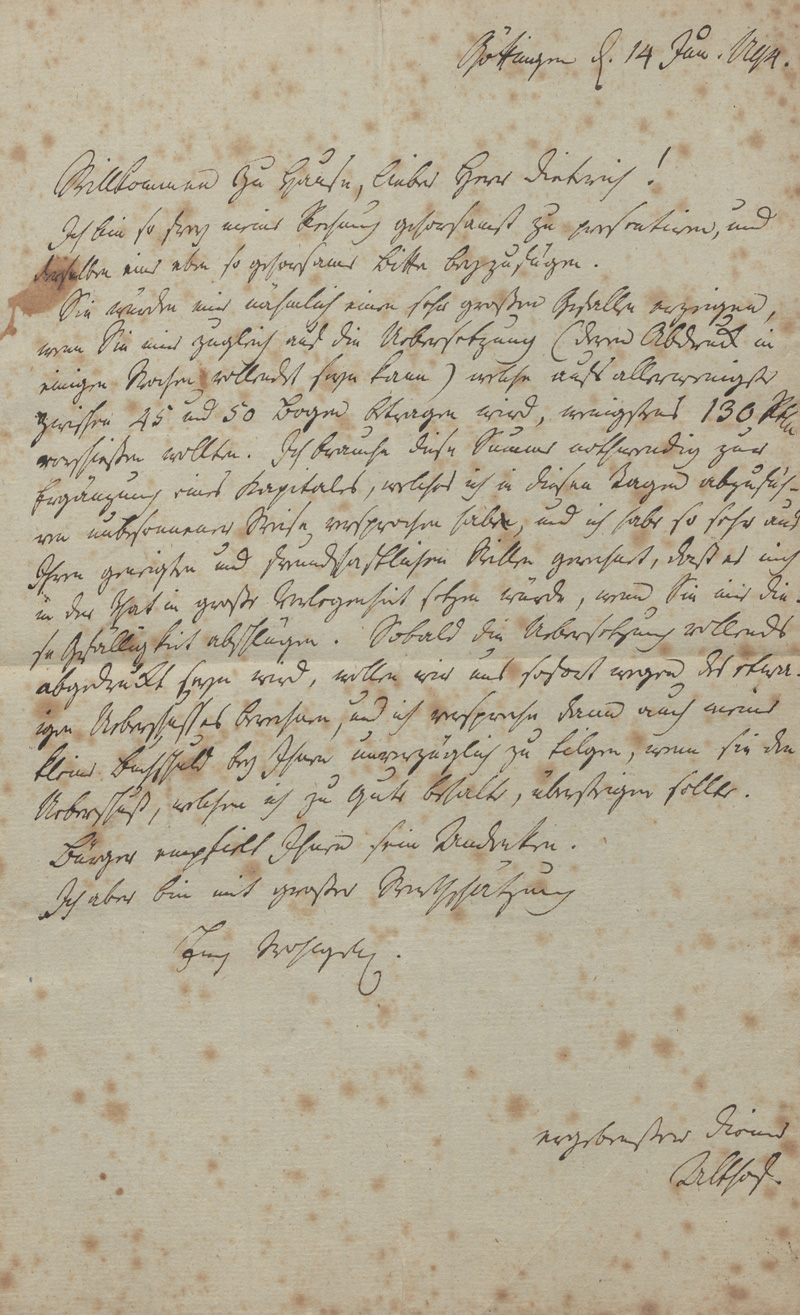 Göttingen d. 14 Jun. 1794.
Willkommen zu Hause, lieber Herr Dieterich!
Ich bin so frey meine Rechnung gehorsamst zu presentiren, und
derselben eine eben so gehorsame Bitte beyzufügen.
Sie würden mir nähmlich einen sehr großen Gefallen erzeigen,
wenn Sie mir zugleich auf die Uebersetzung (deren Abdruck in
einigen Wochen vollendet seyn kann) welche aufs allerwenigste
zwischen 45 und 50 Bogen betragen wird, wenigstens 130 Rthlr
vorschießen wollten. Ich brauche diese Summe nothwendig zur
Ergänzung eines Kapitales, welches ich in diesen Tagen abzufüh-
ren unbesonnener Weise versprochen habe, und ich habe so sehr auf
Ihren geneigten und freundschaftlichen Willen gerechnet, daß es mich
in der That in große Verlegenheit setzen würde, wenn Sie mir die-
se Gefälligkeit abschlügen. Sobald die Uebersetzung vollends
abgedruckt seyn wird, wollen wir uns sofort wegen des etwa-
igen Ueberschusses berechnen, und ich verspreche dann auch meine
kleine Buchschuld bey Ihnen unverzüglich zu tilgen, wenn sie den
Ueberschuß, welchen ich zu Gute behalte, übersteigen sollte.
Bürger empfielt Ihnen sein Andenken.
Ich aber bin mit großer Werthschätzung
Ew Wohlgeb.
ergebenster Diener
Althof.